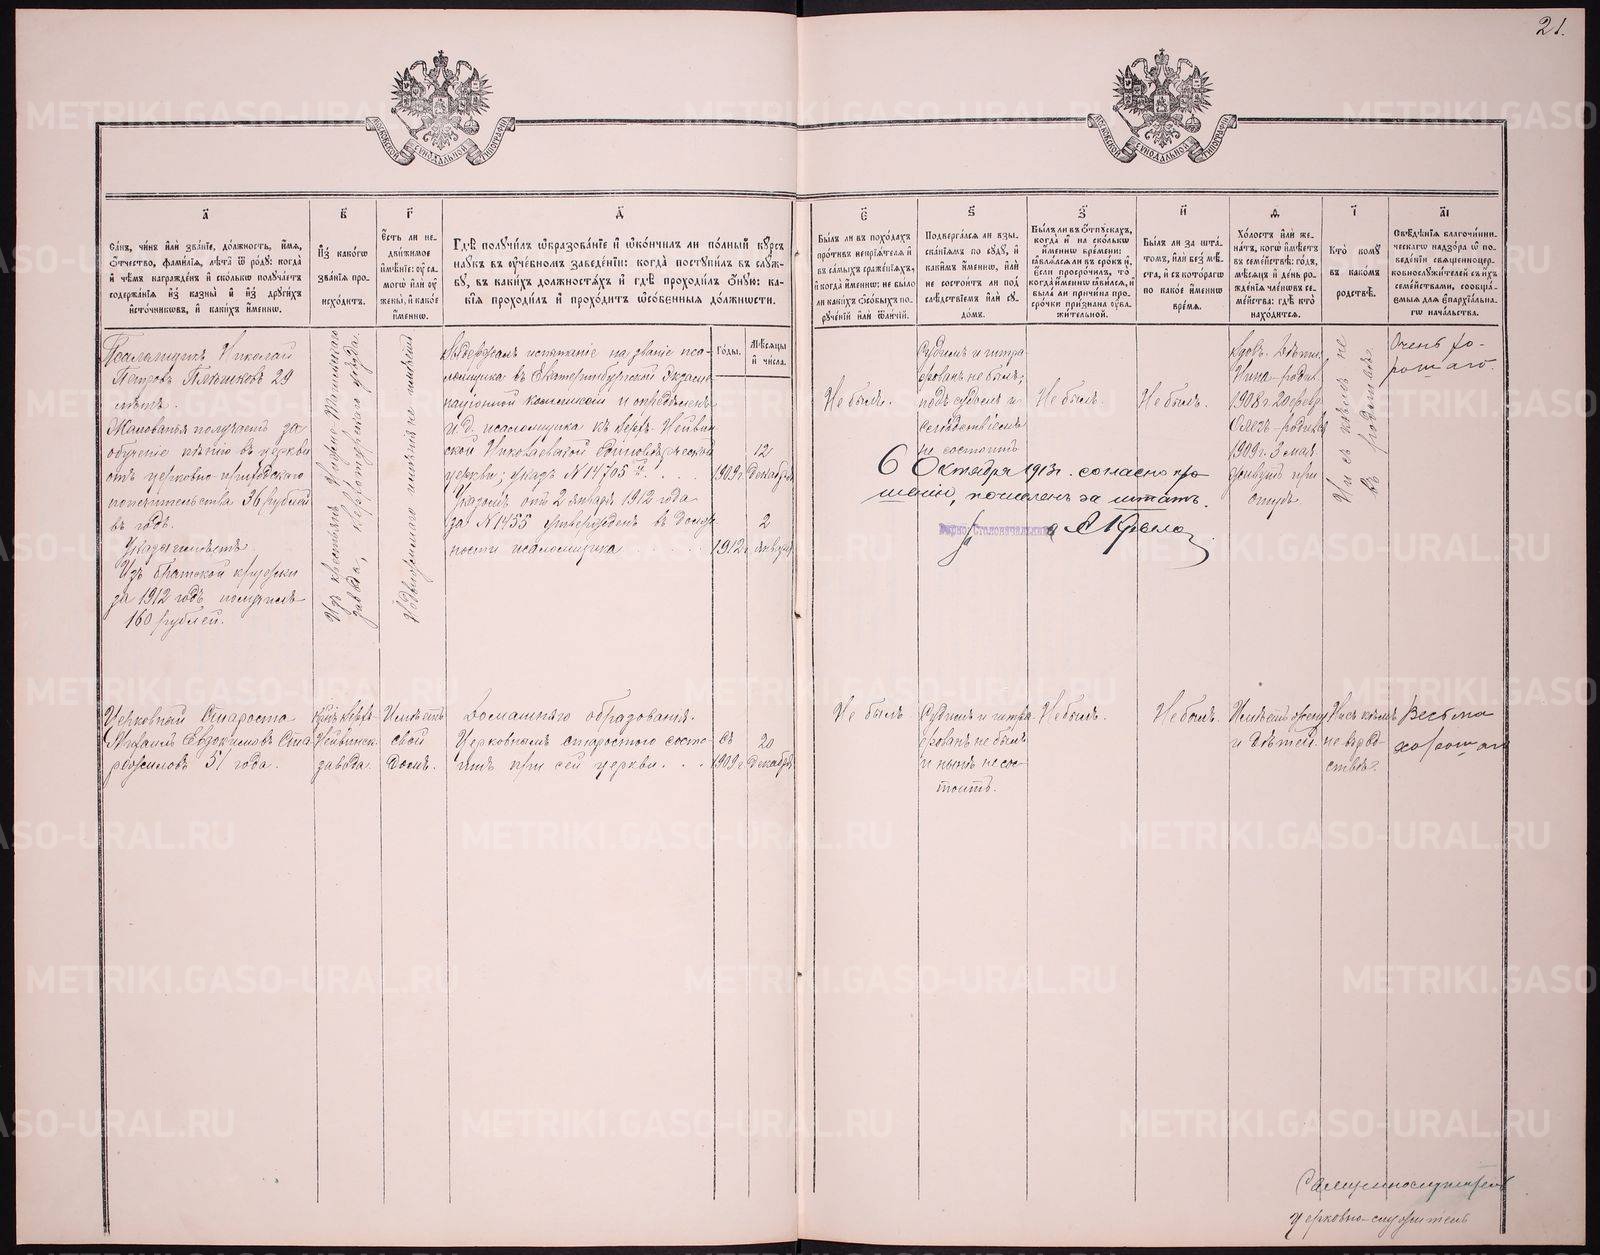 21.
МОСКОВСКОЙ СѴНОДАЛЬНОЙ ТИПОГРАФІИ
МОСКОВСКОЙ СѴНОДАЛЬНОЙ ТИПОГРАФІИ
А҃
Санъ, чинъ или званіе, должность, имя,
отчество, фамилія, лѣта ѿ роду: когда
и чѣмъ награжденъ и сколько получаетъ
содержанія изъ казны и изъ другихъ
источниковъ, и какихъ именно.
В҃
Изъ какого
званія про-
исходитъ.
Г҃
Есть ли не-
движимое
имѣніе: у са-
мого или у
жены, и какое
именно.
Д҃
Гдѣ получилъ образованіе и окончилъ ли полный курсъ
наукъ въ учебномъ заведеніи: когда поступилъ въ служ-
бу, въ какихъ должностяхъ и гдѣ проходилъ оную: ка-
кія проходилъ и проходитъ особенныя должности.
Є҃
Былъ ли въ походахъ
противъ непріятеля и
въ самыхъ сраженіяхъ,
и когда именно: не было
ли какихъ особыхъ по-
рученій или отличій.
Ѕ҃
Подвергался ли взы-
сканіямъ по суду, и
какимъ именно, или
не состоитъ ли под
слѣдствіемъ или су-
домъ.
З҃
Былъ ли въ отпускахъ,
когда и на сколько
именно времени:
являлся ли въ срокъ и,
если просрочилъ, то
когда именно явился, и
была ли причина про-
срочки признана ува-
жительной.
И҃
Былъ ли за шта-
томъ, или безъ мѣ-
ста, и съ котораго
по какое именно
время.
Ѳ҃
Холостъ или же-
натъ, кого имѣетъ
въ семействѣ: годъ,
мѣсяцъ и день рож-
денія членовъ се-
мейства: гдѣ кто
находится.
І҃
Кто кому
въ какомъ
родствѣ.
АІ҃
Свѣдѣнія благочинни-
ческаго надзора о по-
веденіи священноцер-
ковнослужителей съ ихъ
семействами, сообща-
емыя для епархіально-
го начальства.
Псаломщикъ Николай
Петровъ 29
лѣтъ.
Жалованья получаетъ за
обученіе пѣнію въ церкви
отъ церковно-приходскаго
попечительства 36 рублей
въ годъ.
Указы имѣетъ
Изъ братской кружки
за 1912 годъ получилъ
160 рублей.
Изъ крестьянъ
завода, Верхотурскаго уѣзда.
Недвижимаго имѣнія не имѣетъ
Выдержалъ испытаніе на званіе пса-
ломщика въ Екатеринбургской Экзаме-
націонной коммиссіи и опредѣленъ
и. д. псаломщика къ Верх-Нейвин-
ской Николаевской Единовѣрческой
церкви; указъ № 14705
Указомъ отъ 2 января 1912 года
за № 1455 утвержденъ въ долж-
ности псаломщика
Годы.
Мѣсяцы
и числа.
12
1909 г. Декабря
2
1912 г. Января
Не былъ.
Судимъ и штра-
фованъ не былъ,
подъ судомъ и
слѣдствіемъ
не состоитъ
Не былъ.
Не былъ.
6 Октября 1913 г. согласно про-
шенію, почисленъ за штатъ.
Столоначальника
Вдовъ. Дѣти:
Нина родил.
1908 г. 20 февр.
Олегъ родился
1909 г. 3 мая
живутъ при
отцѣ
Ни съ кѣмъ не
въ родствѣ.
Очень хо-
рошаго.
Церковный Староста
Михаилъ Евдокимовъ Ста-
рожиловъ 51 года.
завода.
Имѣетъ
свой
домъ.
Домашняго образованія.
Церковнымъ старостою состо-
итъ при сей церкви.
съ 20
1909 г. Декабря
Не былъ
Судимъ и штра-
фованъ не былъ
и нынѣ не сос-
тоитъ.
Не былъ.
Не былъ.
Имѣетъ жену
и дѣтей.
Ни съ кѣмъ
не въ род-
ствѣ.
Весьма
хорошаго
Церковно-служитель
METRIKI.GASO-URAL.RU